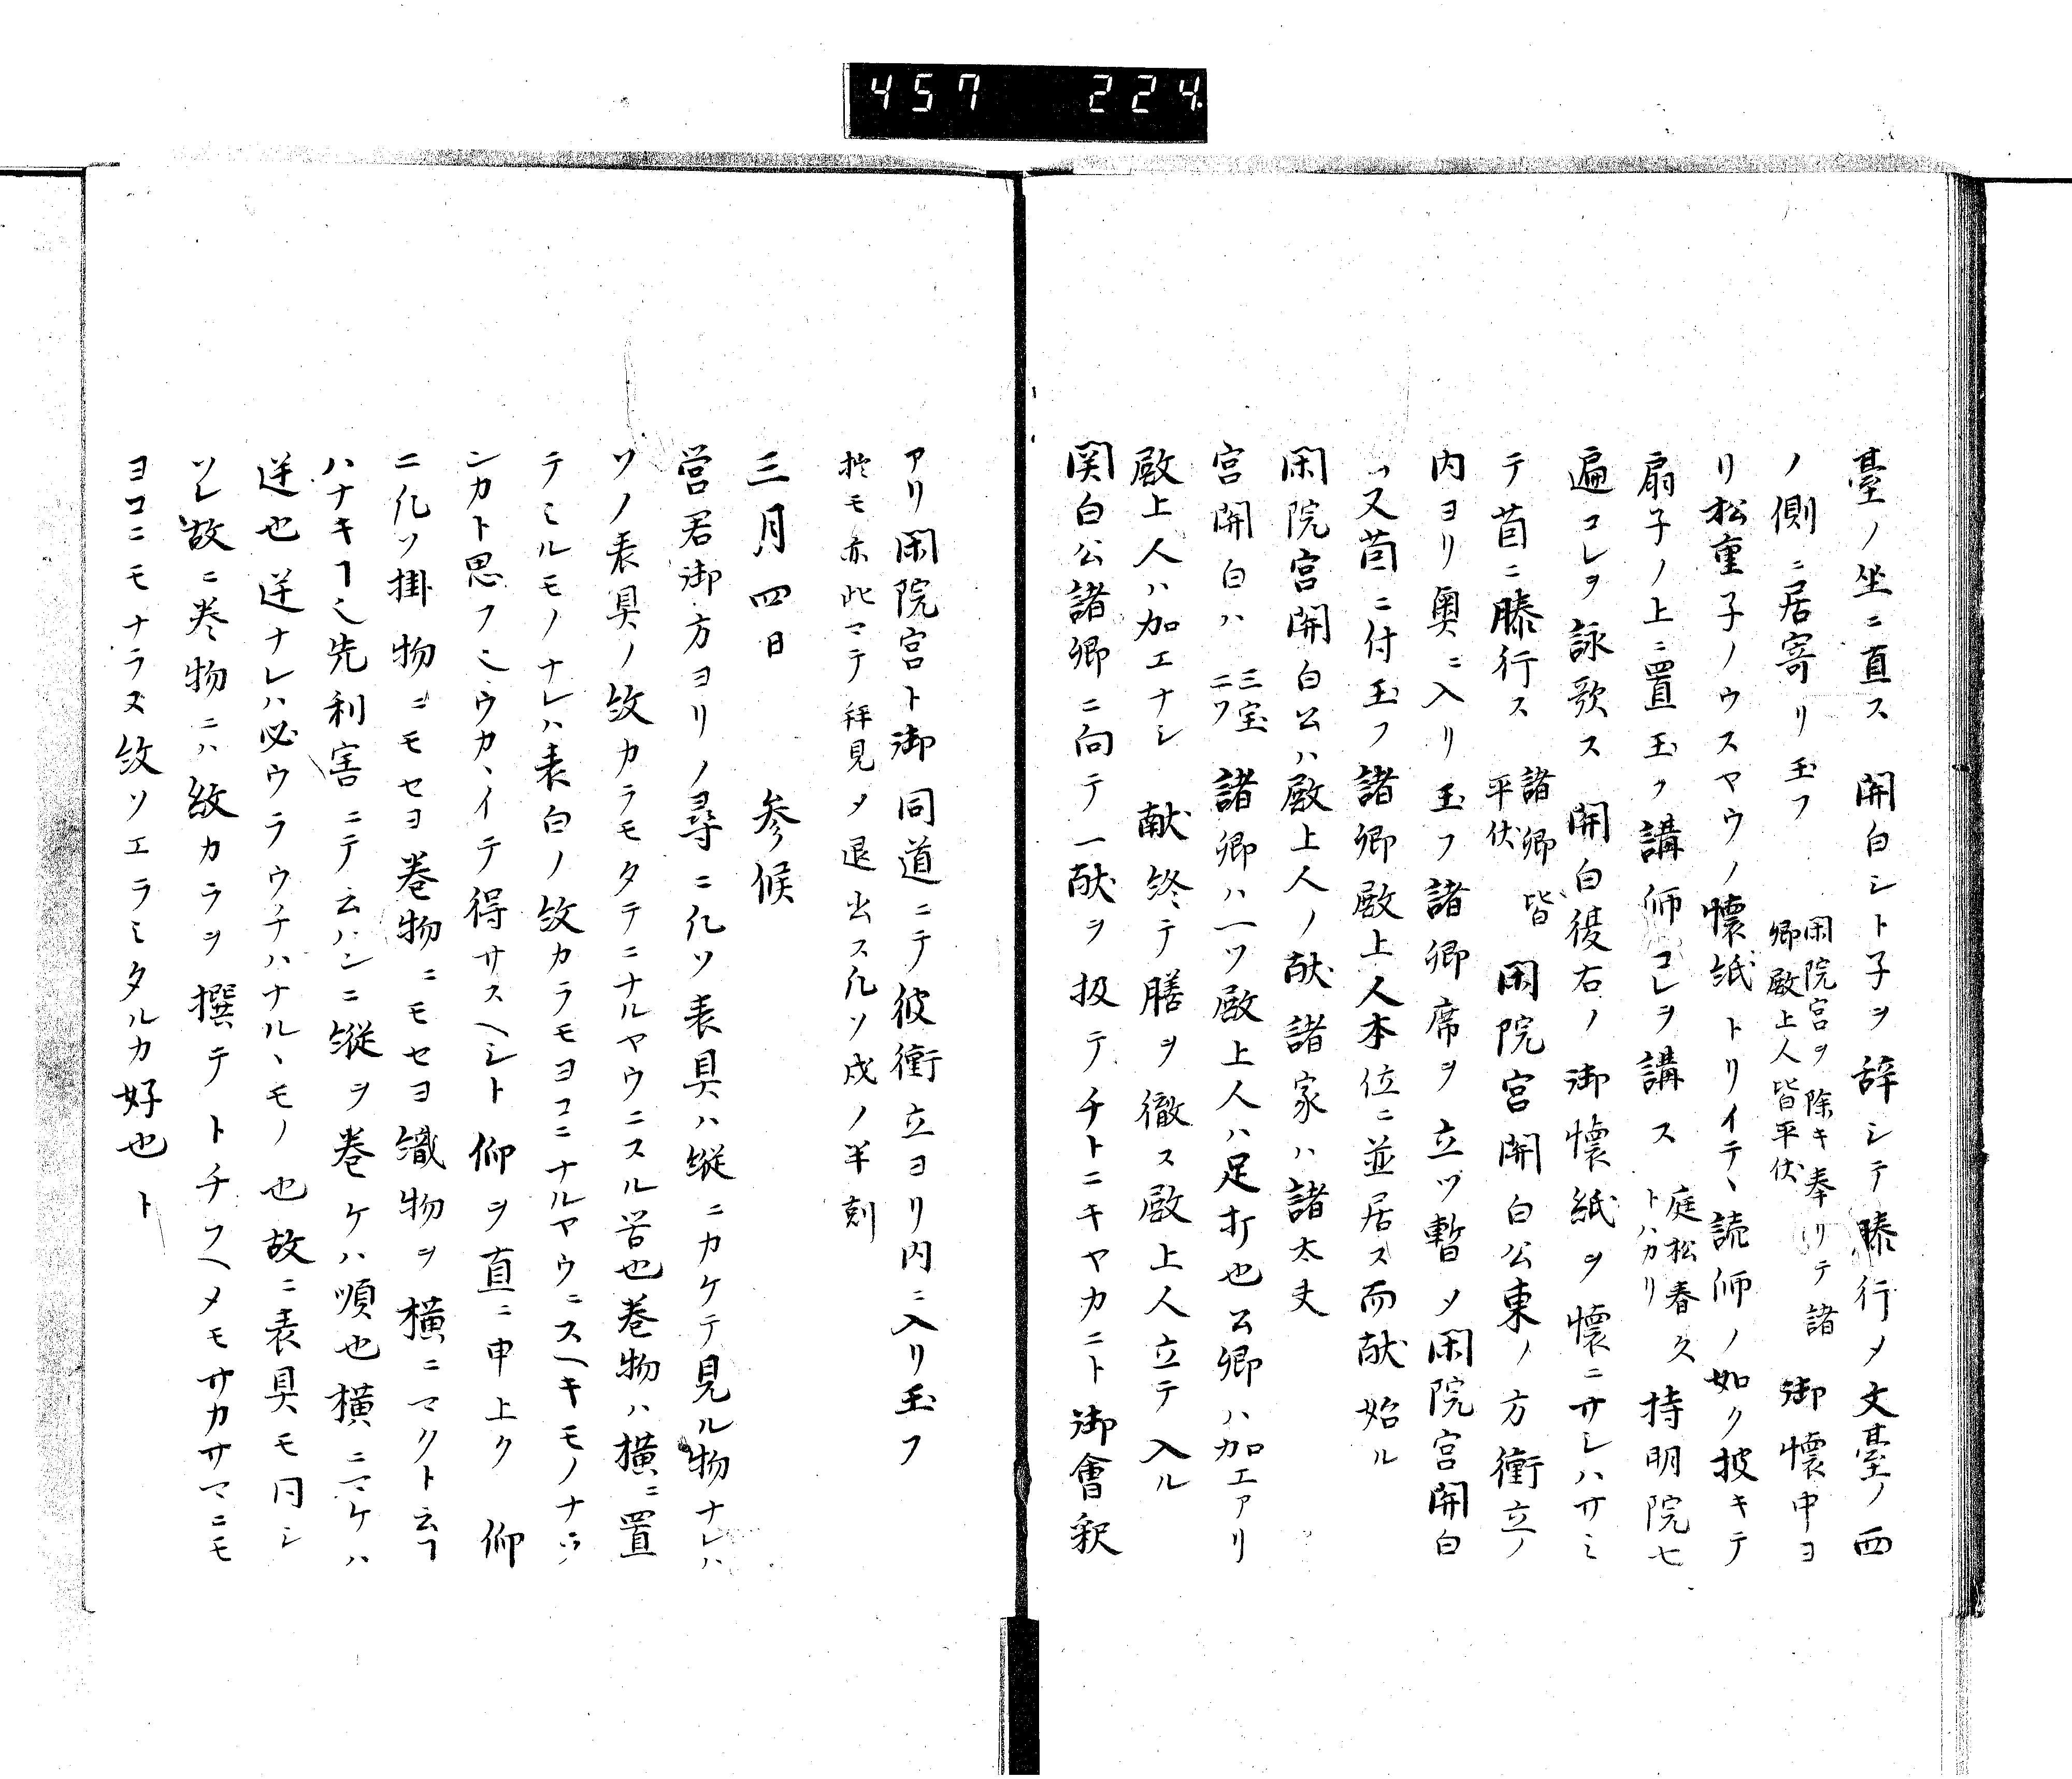 457 224
臺ノ坐ニ直ス 開白シト子ヲ辞シテ膝行メ文臺ノ西
ノ側ニ居寄リ玉フ 閑院宮ヲ除キ奉リテ諸卿殿上人皆平伏 御懐中ヨ
リ松重子ノウスヤウノ懐紙トリイテヽ読師ノ如ク披キテ
扇子ノ上ニ置玉ク講師コレヲ講ス 庭松春久トハカリ 持明院七
遍コレヲ詠歌ス 開白復右ノ御懐紙ヲ懐ニサシハサミ
テ茵ニ膝行ス 諸卿皆平伏 閑院宮開白公東ノ方衝立ノ
内ヨリ奥ニ入リ玉フ諸卿席ヲ立ツ暫メ閑院宮開白
公又茵ニ付玉フ諸卿殿上人本位ニ並居ス而献始ル
閑院宮開白公ハ殿上人ノ献諸家ハ諸太夫
宮開白ハ 三宝ニフ 諸卿ハ一ツ殿上人ハ足打也公卿ハ加エアリ
殿上人ハ加エナシ 献終テ膳ヲ徹ス殿上人立テ入ル
関白公諸卿ニ向テ一献ヲ扱テチトニキヤカニト御會釈
アリ閑院宮ト御同道ニテ彼衝立ヨリ内ニ入リ玉フ
拙モ亦此マテ拜見メ退出ス凡ソ戌ノ半刻
三月四日 参候
営君御方ヨリノ尋ニ凡ソ表具ハ縦ニカケテ見ル物ナレハ
ソノ表具ノ紋カラモタテニナルヤウニスル筈也巻物ハ横ニ置
テミルモノナレハ表白ノ紋カラモヨコニナルヤウニスヘキモノナラ
ンカト思フヿウカヽイテ得サスヘシト仰ヲ直ニ申上ク 仰
ニ凡ソ掛物ニモセヨ巻物ニモセヨ織物ヲ横ニマクト云ヿ
ハナキヿ也先利害ニテ云ハンニ縦ヲ巻ケハ順也横ニマケハ
逆也逆ナレハ必ウラウチハナルヽモノ也故ニ表具モ同シ
ソレ故ニ巻物ニハ紋カラヲ撰テトチフヘメモサカサマニモ
ヨコニモナラヌ紋ソエラミタルカ好也ト